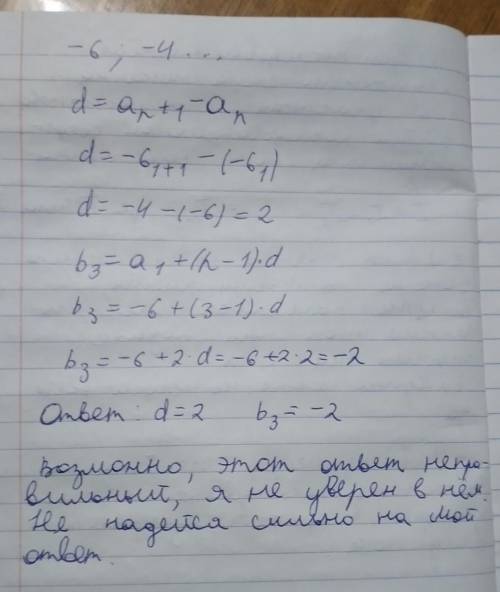 -6; -4...
d = aₙ₊₁ - aₙ
d = -6₁₊₁ - (-6₁)
d = -4 - (-6) = 2
b₃ = a₁ + (n - 1)·d
b₃ = -6 + (3 - 1)·d
b₃ = -6 + 2·d = -6 + 2·2 = -2
Ответ: d = 2 b₃ = -2
Возможно, этот ответ непра-
вильный, я не уверен в нём.
Не надейся сильно на мой
ответ.